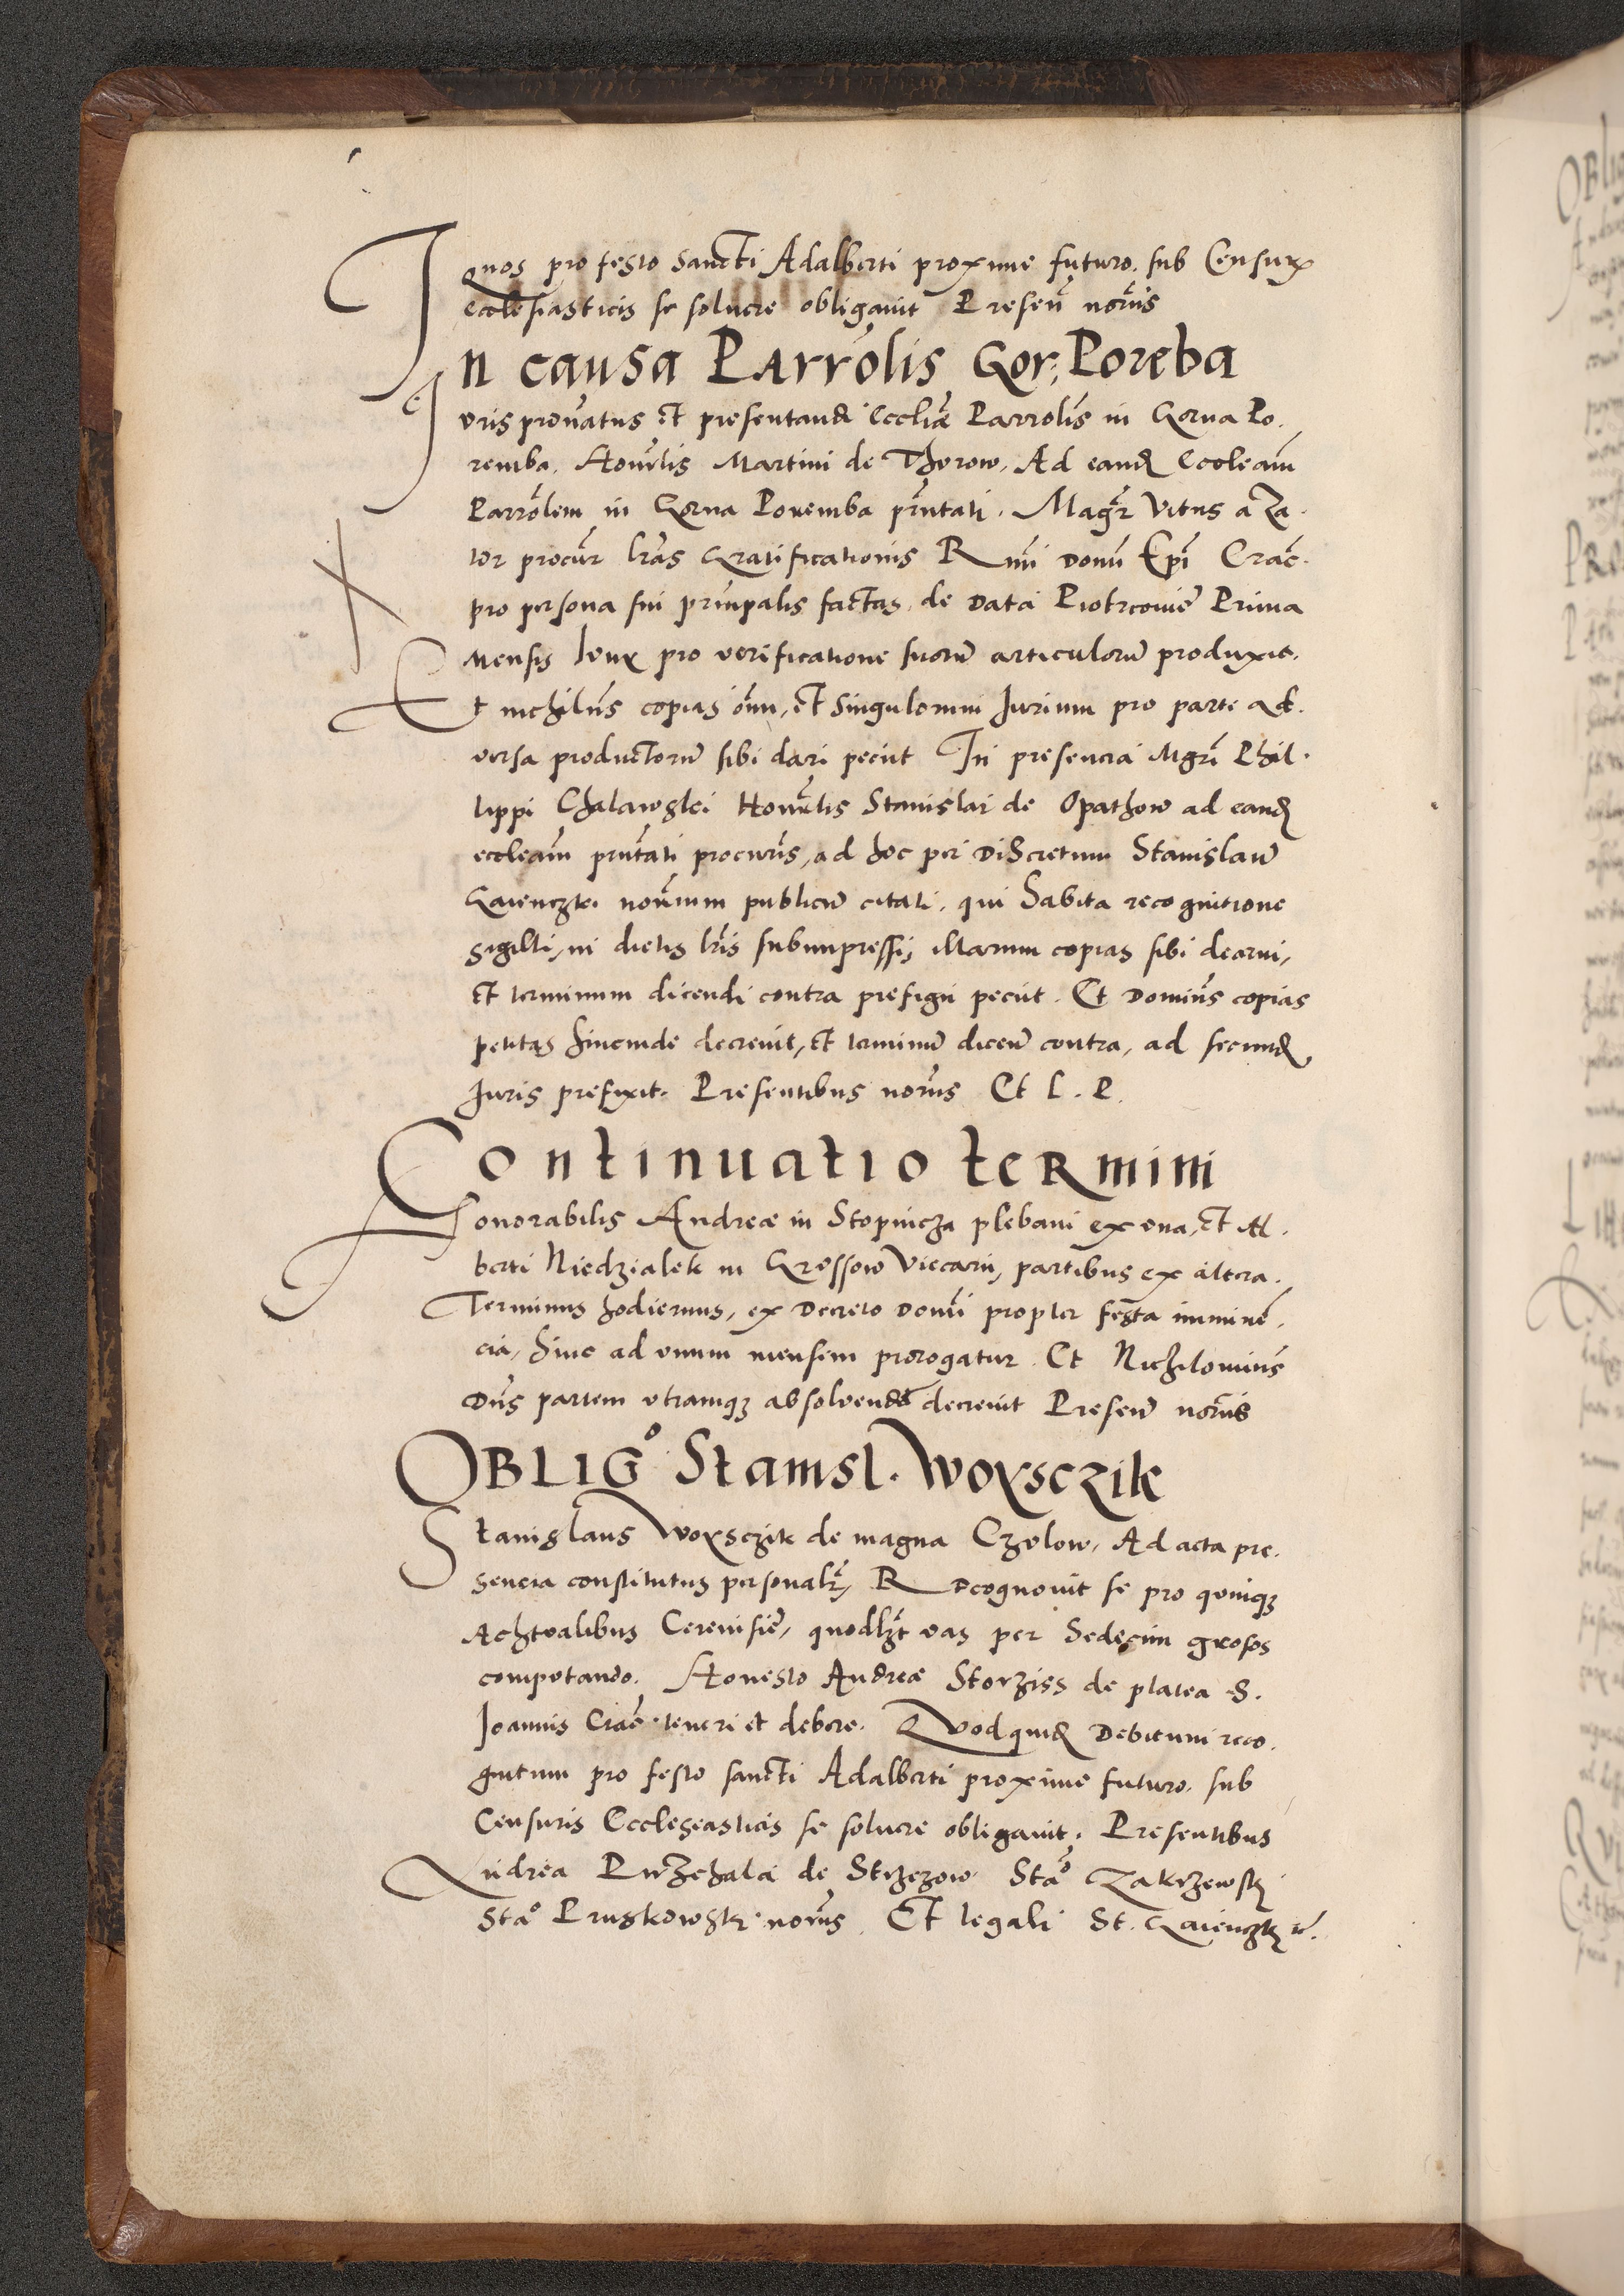 Quos pro festo sancti Adalberti proxime futuro. sub Censurꝭ
ecclesiasticis se soluere obligauit Presen̄ nor̄iis
In causa Parrolis Gor: Poreba
Juris pronatus et presentand Eccliæ Parrolis in Gorna Po.
remba. Honr̄lis Martini de Thorow. Ad eand Eccleam
Parrolem in Gorna Poremba prntati. Magr̄ Vitus a Za.
tor procūr lr̄as Gratificationis Rmi Domi Epi Crac̄.
pro persona sui prinpalis factas. de Data Piotrcouie Prima
Mensis Ianꝭ pro verificatione suorū articulorū produxit.
Et nichilus copias oim, et singulorum Jurium pro parte ad.
versa productorū sibi dari peciit In presencia Mgri Phil.
lippi Chalawskei Honr̄lis Stanislai de Opathow ad eand
eccleam prntati procuris, ad hoc per Discretum Stanislaū
Gaienczkei nor̄ium publicū citati. qui habita recognitione
sigilli, in dictis lr̄is subimpressi, illarum copias sibi decerni,
et terminum dicendi contra prefigii peciit. Et Dominus copias
petitas hincinde decreuit, et terminū dicen̄ contra, ad secund
Juris prefixit. Presentibus nor̄iis Et l. P.
Continuatio termini
Honorabilis Andreæ in Stopnicza plebani ex vna, et Al.
berti Niedzialek in Grossow Viccarii, partibus ex altera.
Terminus hodiernus, ex Decreto Domi propter festa imminē.
cia, hinc ad vnum mensem prorogatur. Et Nichilominus
Dn̄s partem vtramqꝫ absoluend decreuit Presen̄ nor̄iis
Obligo Stanisl. Woysczik
Stanislaus Woysczik de magna Czolow, Ad acta pre.
sencia constitutus personalr̄, Recognouit se pro quinqꝫ
Achtvalibus Cereuisiē, quodlꝫt vas per Sedecim grosos
computando. Honesto Andreæ Storziss de platea S.
Joannis Crac̄. teneri et debere. Quodquid Debitum reco.
gnitum pro festo sancti Adalberti proxime futuro. sub
Censuris Ecclesiasticis se soluere obligauit. Presentibus
Andrea Przechala de Strzezow Stao Zakrzewsky
Stao Pruskowsky. nor̄iis. Et legali St. Gaienczky &c.